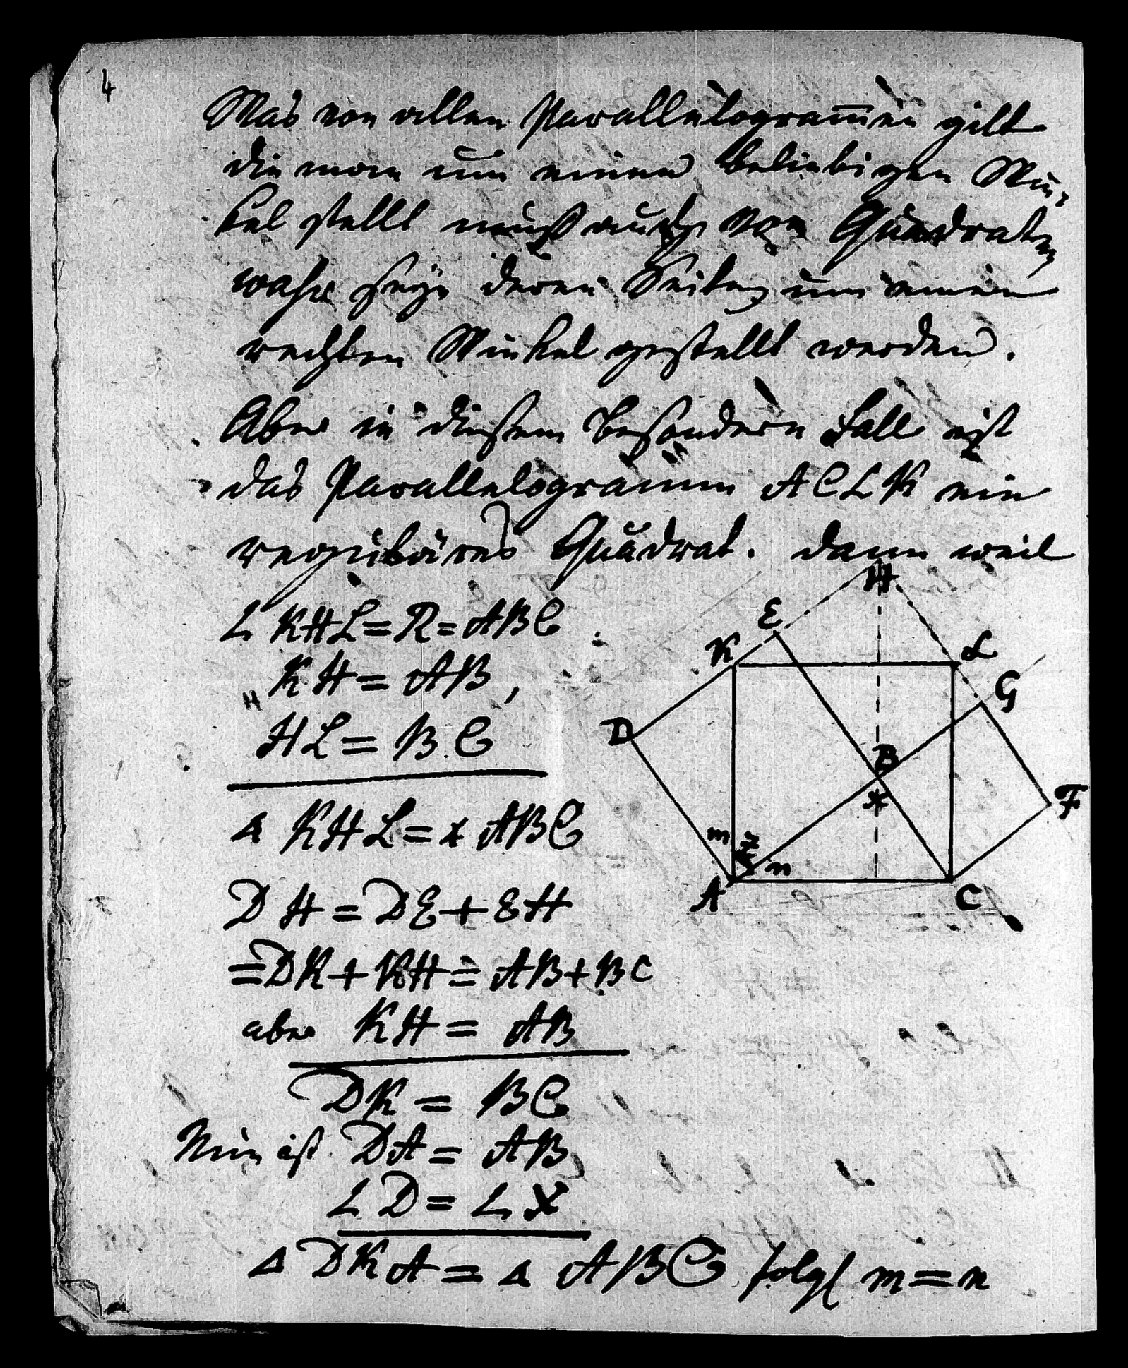 4
Was von allen Parallelogram̅en gilt
die man um einen beliebigen Win-
kel stellt muß auch von Quadraten
wahr seyn deren Seiten um einen
rechten Winkel gestellt werden.
Aber in diesem besondern Fall ist
das Parallelogramm ACLK ein
reguläres Quadrat. dann weil
L KHL = R = ABC
KH = AB,
HL = BC
Δ KHL = x ABC
DH = DE + EH
= DK + KH = AB + BC
aber KH = AB
DK = BC
Nun ist DA = AB
L D = L X
Δ DKA = Δ ABC folgl m = n
H
E
K
L
G
D
B
x
F
m
z
n
A
C